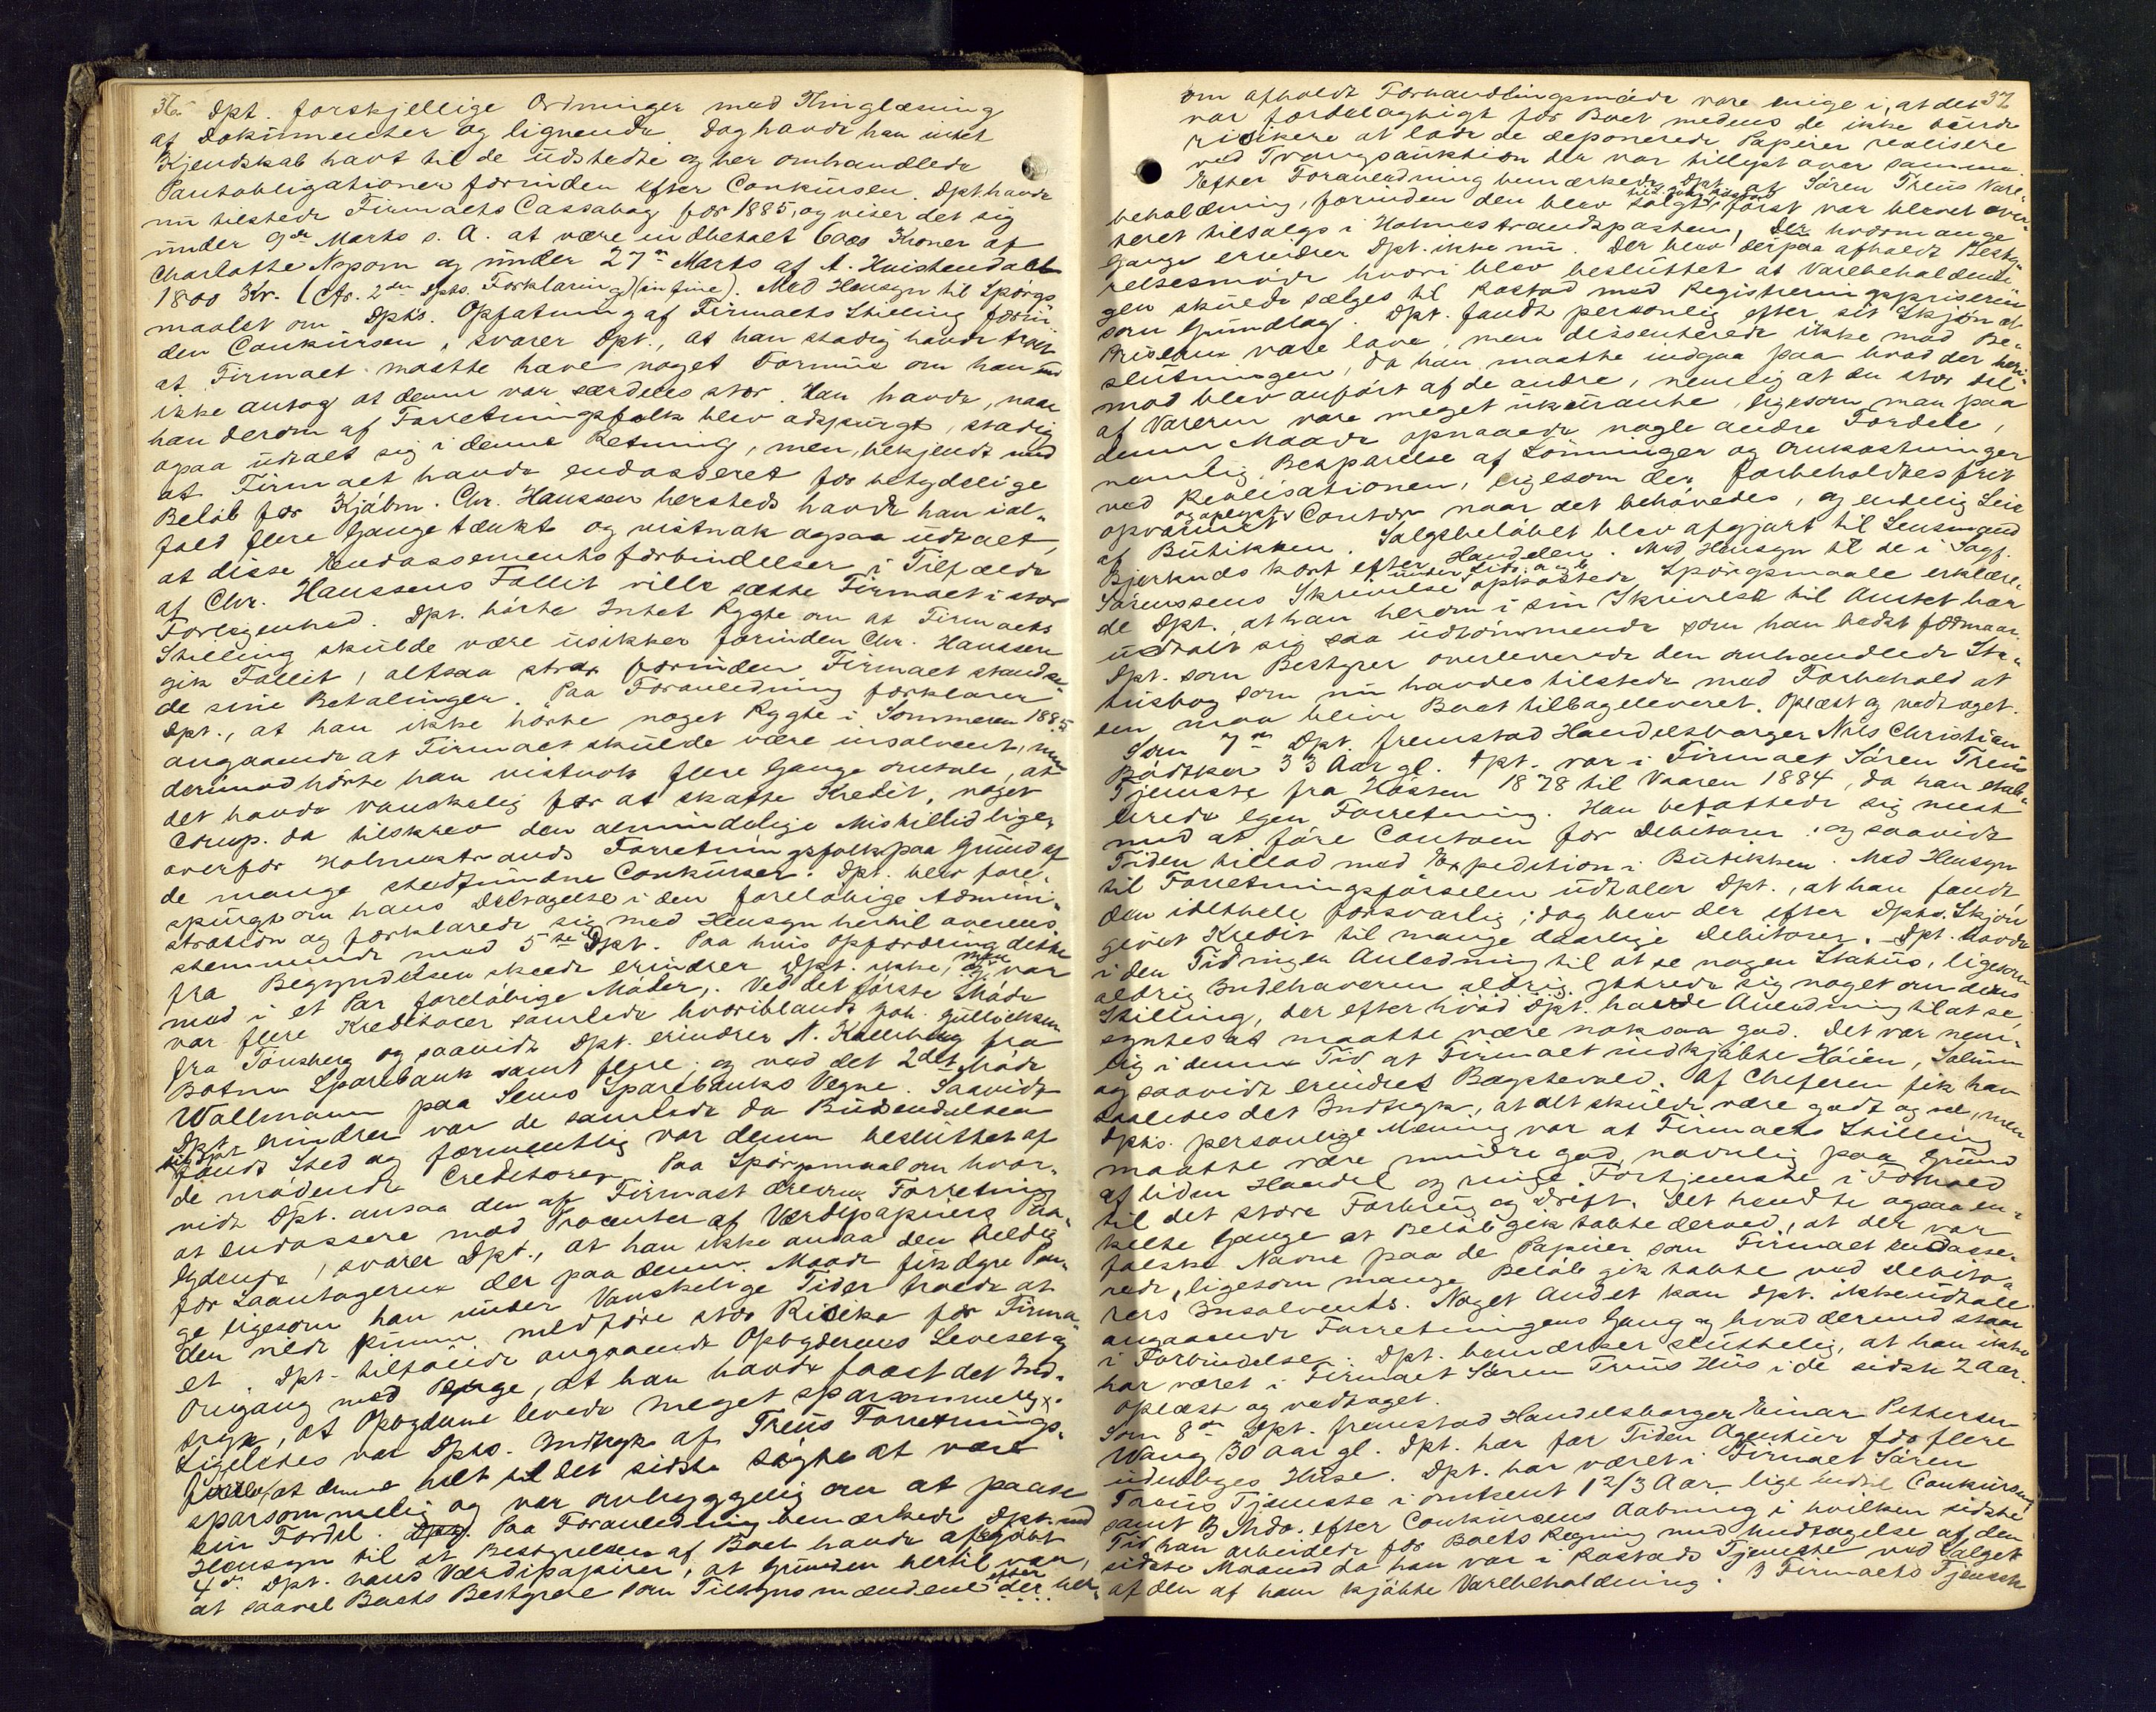 36.
Dpt. forskjellige Ordninger med Thinglæsning
af Dokumenter og lignende. Dog havde han intet
Kjendskab havt til de udstedte og her omhandlede
Pantobligationer førinden efter Conkursen. Dpt. havde
nu tilstede Firmaets Cassabog for 1885, og viser det sig
under 9de Marts s. A. at være indbetalt 6000 Kroner af
Charlotte Napom og under 27n Marts af A. Huistendahl
1800 Kr. (Cfr. 2den Dpts. Forklaring) (in fine). Med Hensyn til Spørgs-
maalet om Dpts. Opfatning af Firmaets Stilling førin-
den Conkursen, svarer Dpt., at han stadig havde troet
at Firmaet maatte have noget Formue om han end
ikke antog at denne var særdeles stor. Han havde, naar
han derom af Forretningsfolk blev adspurgt, stadig
ogsaa udtalt sig i denne Retning, men, bekjendt med
at Firmaet havde endosseret for betydelige
Beløb for Kjøbm. Chr. Hanssen hersteds havde han ial-
fald flere Gange tænkt og vistnok ogsaa udtalt,
at disse Endossementsforbindelser i Tilfælde
af Chr. Hanssens Fallit ville sætte Firmaet i stor
Forlegenhed. Dpt. hørte Intet Rygte om at Firmaets
Stilling skulde være usikker førinden Chr. Hanssen
gik Fallit, altsaa strax førinden Firmaet standse-
de sine Betalinger. Paa Foranledning forklarer
Dpt., at han ikke hørte noget Rygte i Sommeren 1885
angaaende at Firmaet skulde være insolvent, men
derimod hørte han vistnok flere Gange omtale, at
det havde vanskelig for at skaffe Kredit, noget
Comp. da tilskrev den almindelige Mistillid lige-
overfor Holmestrands Forretningsfolk paa Grund af
de mange stedfundne Conkurser. Dpt. blev fore-
spurgt om hans Deltagelse i den foreløbige Admini-
stration og forklarede sig med Hensyn hertil overens-
stemmende med 5te Dpt. Paa hvis Opfordring dette
fra Begyndelsen skeede erindrer Dpt. ikke, men var
med i et Par foreløbige Møder. Ved det første Møde
var flere Kreditorer samlede hvoriblandt Joh. Gulliksen
fra Tønsberg og saavidt Dpt. erindrer N. Kallberg fra
Botne Sparebank samt flere; og ved det 2det Møde
Wallmann paa Sems Sparebanks Vegne. Saavidt
Dpt. erindrer var de samlede da Budsendelsen
fandt Sted og formentlig var denne besluttet af
de mødende Creditorer. Paa Spørgsmaal om hvor-
vidt Dpt. ansaa den af Firmaet drevne Forretning
at endossere mod Procenter af Værdipapirers Paa-
lydende, svarer Dpt., at han ikke ansaa den heldig
for Laantagerne der paa denne Maade fik dyre Pen-
ge ligesom han under Vanskelige Tider troede at
den vilde kunne medføre stor Risiko for Firma-
et. Dpt. tilføiede angaaende Opbyderens Levesæt og
Omgang med Penge, at han havde faaet det Ind-
tryk, at Opbyderne levede meget sparsommelig.
Ligeledes var Dpts. Indtryk af Treus Forretnings-
førsel at denne helt til det sidste søgte at være
sparsommelig og var omhyggelig om at paase
sin Fordel. Paa Foranledning bemærkede Dpt. med
Hensyn til at Bestyrelsen af Boet havde afkjøbt
4de Dpt. hans Værdipapirer, at Grunden hertil var,
at saavel Boets Bestyrere som Tilsynsmændene efter der her-
37
om afholdt Forhandlingsmøde vare enige i, at det
var fordelagtigt for Boet medens de ikke turde
risikere at lade de deponerede Papirer realisere
ved Tvangsauktion der var tillyst over samme.
Efter Foranledning bemærkede Dpt. at Søren Treus Vare-
beholdning, forinden den blev solgt til Joh. Rostad, først var blevet aver-
teret tilsalgs i Holmestrandsposten, Der hvormange
Gange erindrer Dpt. ikke nu. Der blev derpaa afholdt Besty-
relsesmøde hvori blev besluttet at Varebeholdnin-
gen skulde sælges til Rostad med Registreringspriserne
som Grundlag. Dpt. fandt personlig efter sit Skjøn at
Priserne vare lave, men dissenterede ikke mod Be-
slutningen, da han maatte indgaa paa hvad der heri-
mod blev anført af de andre, nemlig at en stor Del
af Varerne vare meget ukurante, ligesom man paa
denne Maade opnaaede nogle andre Fordele,
nemlig Besparelse af Lønninger og Omkostninger
ved Realisationen, ligesom der forbeholdtes frit
opvarmet og oplyst Contor naar det behøvedes, og endelig Leie
af Butikken. Salgsbeløbet blev afgjort til Lensmand
Bjerknes kort efter Handelen. Med Hensyn til de i Sagf.
Sørenssens Skrivelse under Litr. a og b opkastede Spørgsmaale erklære-
de Dpt., at han herom i sin Skrivelse til Amtet har
udtalt sig saa udtømmende som han bedst formaar.
Dpt. som Bestyrer overleverede den omhandlede Sta-
tusbog som nu havdes tilstede med Forbehold at
den maa blive Boet tilbageleveret. Oplæst og vedtaget.
Som 7de Dpt. fremstod Handelsborger Nils Christian
Bødtker 33 Aar gl. Dpt. var i Firmaet Søren Treus
Tjeneste fra Høsten 1878 til Vaaren 1884, da han etab-
lerede egen Forretning. Han befattede sig mest
med at føre Contoen for Debitorer, og saavidt
Tiden tillod med Expedition i Butikken. Med Hensyn
til Forretningsførselen udtaler Dpt., at han fandt
den idethele forsvarlig; dog blev der efter Dpts. Skjøn
givet Kredit til mange daarlige Debitorer. Dpt. havde
i den Tid ingen Anledning til at se nogen Status, ligesom
aldrig Indehaveren aldrig ytrede sig noget om dens
Stilling, der efter hvad Dpt. havde Anledning til at se,
syntes at maatte være noksaa god. Det var nem-
lig i denne Tid at Firmaet indkjøbte Høien, Solum
og saavidt erindres Bagstevold. Af Cheferen fik han
saaledes det Indtryk, at alt skulde være godt og vel, men
Dpts. personlige Mening var at Firmaets Stilling
maatte være mindre god, navnlig paa Grund
af liden Handel og ringe Fortjeneste i Forhold
til det store Forbrug og Drift. Det hændte ogsaa en-
kelte Gange at Beløb gik tabte derved, at der var
falske Navne paa de Papirer som Firmaet endosse-
rede, ligesom mange Beløb gik tabte ved Debito-
rers Insolvents. Noget Andet kan Dpt. ikke udtale
angaaende Forretningens Gang og hvad dermed staar
i Forbindelse. Dpt. bemærker sluttelig, at han ikke
har været i Firmaet Søren Treus Hus i de sidste 2 Aar.
Oplæst og vedtaget.
Som 8de Dpt. fremstod Handelsborger Einar Pettersen
Wang 30 Aar gl. Dpt. har for Tiden Agentur for flere
udenbyes Huse. Dpt. har været i Firmaet Søren
Treus Tjeneste i omtrent 1 2/3 Aar lige indtil Conkursen
samt 3 Mdr. efter Conkursens Aabning i hvilken sidste
Tid han arbeidede for Boets Regning med Undtagelse af den
sidste Maaned da han var i Rostads Tjeneste ved Salget
af den af ham kjøbte Varebeholdning. I Firmaets Tjeneste